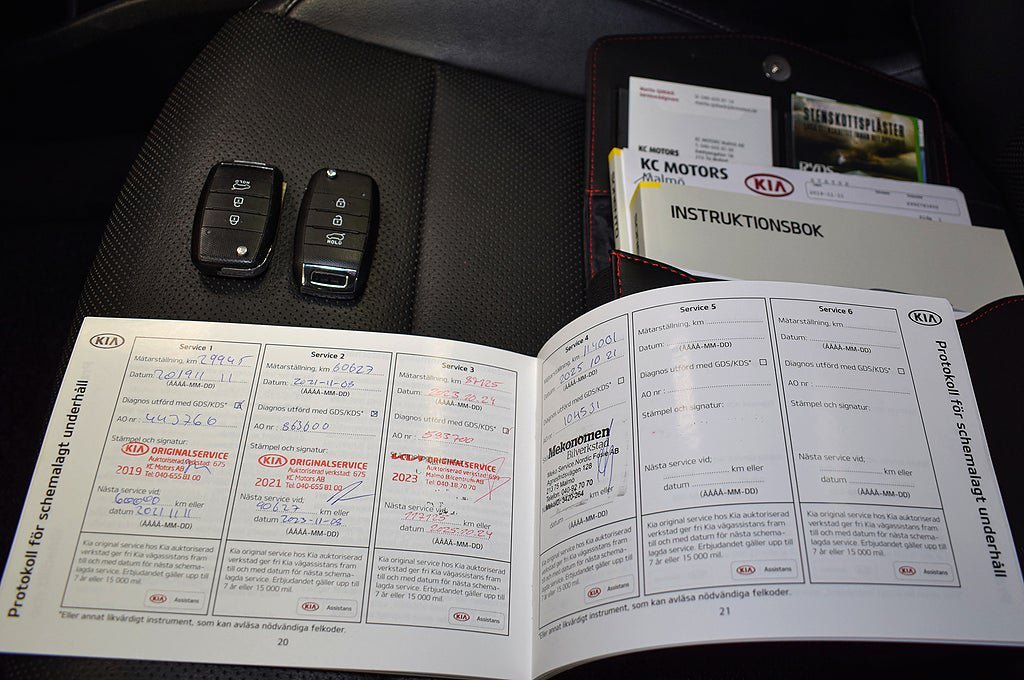 HOLD
HOLD
KC MOTORS
KC MOTORS
Malmö
KIA
STENSKOTTSPLÄSTER
INSTRUKTIONSBOK
KIA
Protokoll för schemalagt underhåll
Service 1
Mätarställning, km 29945
Datum: 201911 11
(ÅÅÅÅ-MM-DD)
Diagnos utförd med GDS/KDS*
AO nr: 443760
Stämpel och signatur:
KIA ORIGINALSERVICE
Auktoriserad verkstad: 675
2019 KC Motors AB
Tel: 040-655 81 00
Nästa service vid:
60000 km eller
datum 20211111
(ÅÅÅÅ-MM-DD)
Kia original service hos Kia auktoriserad
verkstad ger fri Kia vägassistans fram
till och med datum för nästa schema-
lagda service. Erbjudandet gäller upp till
7 år eller 15 000 mil.
KIA Assistans
Service 2
Mätarställning, km 60627
Datum: 2021-11-08
(ÅÅÅÅ-MM-DD)
Diagnos utförd med GDS/KDS*
AO nr: 863600
Stämpel och signatur:
KIA ORIGINALSERVICE
Auktoriserad verkstad: 675
2021 KC Motors AB
Tel: 040-655 81 00
Nästa service vid:
90627 km eller
datum 2023-11-08
(ÅÅÅÅ-MM-DD)
Kia original service hos Kia auktoriserad
verkstad ger fri Kia vägassistans fram
till och med datum för nästa schema-
lagda service. Erbjudandet gäller upp till
7 år eller 15 000 mil.
KIA Assistans
Service 3
Mätarställning, km 87125
Datum: 2023.10.24
(ÅÅÅÅ-MM-DD)
Diagnos utförd med GDS/KDS*
AO nr: 593700
Stämpel och signatur:
ORIGINALSERVICE
Auktoriserad verkstad
2023 Malmö Bilcentrum AB
Tel: 040-18 70 70
Nästa service vid:
117125 km eller
datum 2025.10.24
(ÅÅÅÅ-MM-DD)
Kia original service hos Kia auktoriserad
verkstad ger fri Kia vägassistans fram
till och med datum för nästa schema-
lagda service. Erbjudandet gäller upp till
7 år eller 15 000 mil.
KIA Assistans
*Eller annat likvärdigt instrument, som kan avläsa nödvändiga felkoder.
20
Service 4
Mätarställning, km 114001
Datum: 2025 10 21
(ÅÅÅÅ-MM-DD)
Diagnos utförd med GDS/KDS*
AO nr: 104531
Mekonomen
Bilverkstad
Meko Service Nordic Fosie AB
Agnesfridsvägen 128
213 75 Malmö
Telefon: 040-92 70 70
km eller
datum
(ÅÅÅÅ-MM-DD)
Kia original service hos Kia auktoriserad
verkstad ger fri Kia vägassistans fram
till och med datum för nästa schema-
lagda service. Erbjudandet gäller upp till
7 år eller 15 000 mil.
KIA Assistans
Service 5
Mätarställning, km
Datum:
(ÅÅÅÅ-MM-DD)
Diagnos utförd med GDS/KDS*
AO nr:
Stämpel och signatur:
Nästa service vid:
km eller
datum
(ÅÅÅÅ-MM-DD)
Kia original service hos Kia auktoriserad
verkstad ger fri Kia vägassistans fram
till och med datum för nästa schema-
lagda service. Erbjudandet gäller upp till
7 år eller 15 000 mil.
KIA Assistans
Service 6
Mätarställning, km
Datum:
(ÅÅÅÅ-MM-DD)
Diagnos utförd med GDS/KDS*
AO nr:
Stämpel och signatur:
Nästa service vid:
km eller
datum
(ÅÅÅÅ-MM-DD)
Kia original service hos Kia auktoriserad
verkstad ger fri Kia vägassistans fram
till och med datum för nästa schema-
lagda service. Erbjudandet gäller upp till
7 år eller 15 000 mil.
KIA Assistans
*Eller annat likvärdigt instrument, som kan avläsa nödvändiga felkoder.
21
KIA
Protokoll för schemalagt underhåll